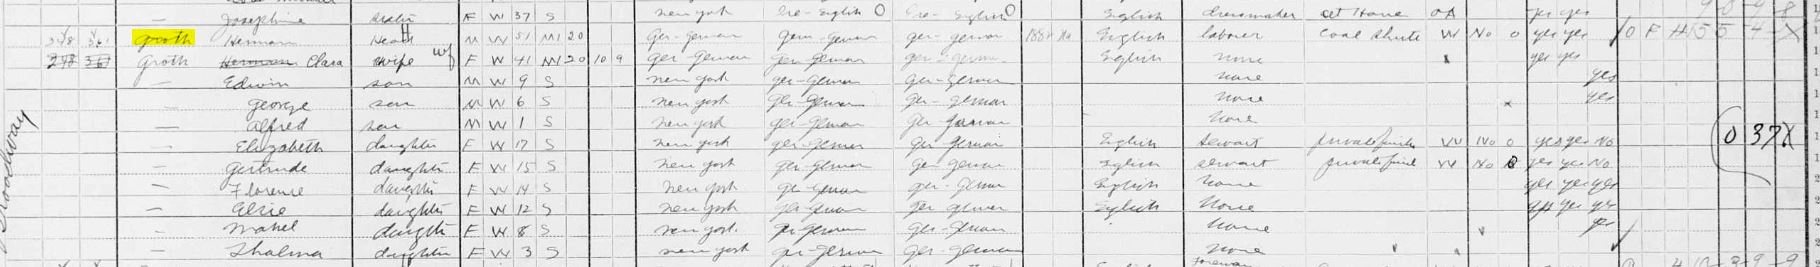 — Josephine sister F W 37 S New York Ire-English O Ire-English O English dressmaker at Home OA yes yes
Grooth Hermann Head M W 51 M1 20 Ger-german Ger-german ger-german English laborer coal chute W No 0 yes yes O F H 155 4 X
Groth Hermann Clara wife wf F W 41 M1 20 10 9 Ger-German ger-German ger-german English none yes yes
— Edwin son M W 9 S New York ger-German Ger-German none yes
— George son M W 6 S New York ger-German Ger-German none yes
— Alfred son M W 1 S New York ger-German Ger-German none
— Elizabeth daughter F W 17 S New York ger-German ger-German English servant private W No 0 yes yes No 037X
— Gertrude daughter F W 15 S New York ger-German ger-German English servant private W No yes yes No
— Florence daughter F W 14 S New York ger-German ger-German English none yes yes yes
— Elsie daughter F W 12 S New York ger-German ger German English none yes yes
— Mabel daughter F W 8 S New York ger-German ger-German none yes
— Thalma daughter F W 3 S New York ger-German ger-German none
foreman
Broadway